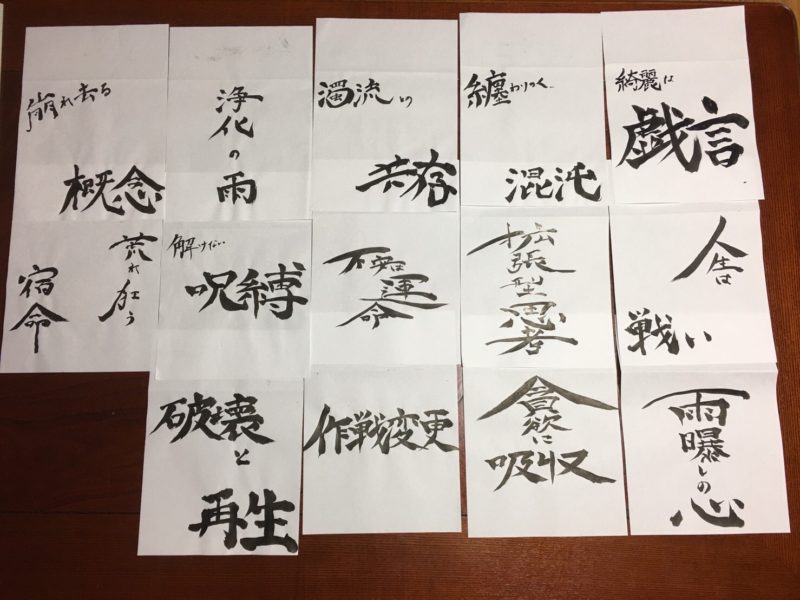 崩れ去る
概念
浄化の雨
濁流の
共存
纏わりつく
混沌
綺麗は
戯言
荒れ狂う
宿命
解けない
呪縛
運命
拡張型思考
人生は
戦い
破壊と
再生
作戦変更
貪欲に
吸収
雨曝しの
心